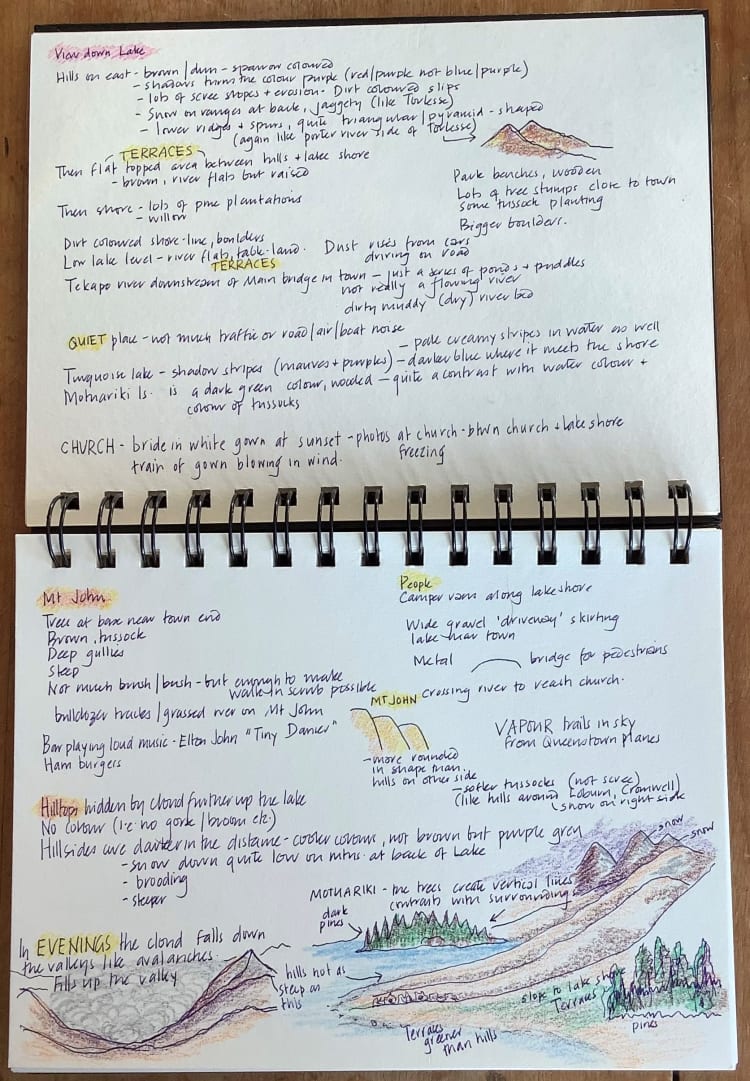 View down Lake
Hills on east - brown / dun - sparrow coloured
- shadows turns the colour purple (red/purple not blue/purple)
- lots of scree slopes + erosion. Dirt coloured slips
- Snow on ranges at back, jaggety (like Torlesse)
- lower ridges + spurs, quite triangular / pyramid - shaped
(again like porter river side of Torlesse)
TERRACES
Then flat topped area between hills + lake shore
- brown, river flats but raised
Then shore - lots of pine plantations
- willow
Park benches, wooden
Lots of tree stumps close to town
some tussock planting
Bigger boulders.
Dirt coloured shore-line, boulders
Low lake level - river flats, table-land.
TERRACES
Dust rises from cars
driving on road
Tekapo river downstream of Main bridge in town - just a series of ponds + puddles
not really a flowing river
dirty muddy (dry) river bed
QUIET place - not much traffic or road/air/boat noise
- pale creamy stripes in water as well
Turquoise lake - shadow stripes (mauves + purples) - darker blue where it meets the shore
Motuariki Is. is a dark green colour, wooded - quite a contrast with water colour +
colour of tussocks
CHURCH - bride in white gown at sunset - photos at church - btwn church + lake shore
train of gown blowing in wind. freezing
Mt John
Trees at base near town end
Brown, tussock
Deep gullies
Steep
Not much brush / bush - but enough to make
walk in scrub possible
bulldozer tracks / grassed over on Mt John
Bar playing loud music - Elton John "Tiny Dancer"
Ham burgers
People
Camper vans along lakeshore
Wide gravel 'driveway' skirting
lake near town
Metal bridge for pedestrians
crossing river to reach church.
MT JOHN
- more rounded
in shape than
hills on other side
VAPOUR trails in sky
from Queenstown planes
- softer tussocks (not scree)
(like hills around Loburn, Cromwell)
snow on right side
Hilltops hidden by cloud further up the lake
No colour (i.e. no gorse / broom etc.)
Hillsides are darker in the distance - cooler colours, not brown but purple grey
- snow down quite low on mtns. at back of Lake
- brooding
- steeper
snow
snow
MOTUARIKI - the trees create vertical lines
contrasts with surroundings
dark
pines
In EVENINGS the cloud falls down
the valleys like avalanches
Fills up the valley
hills not as
steep as
this
slope to lake shore
Terraces
pines
Terraces
greener
than hills